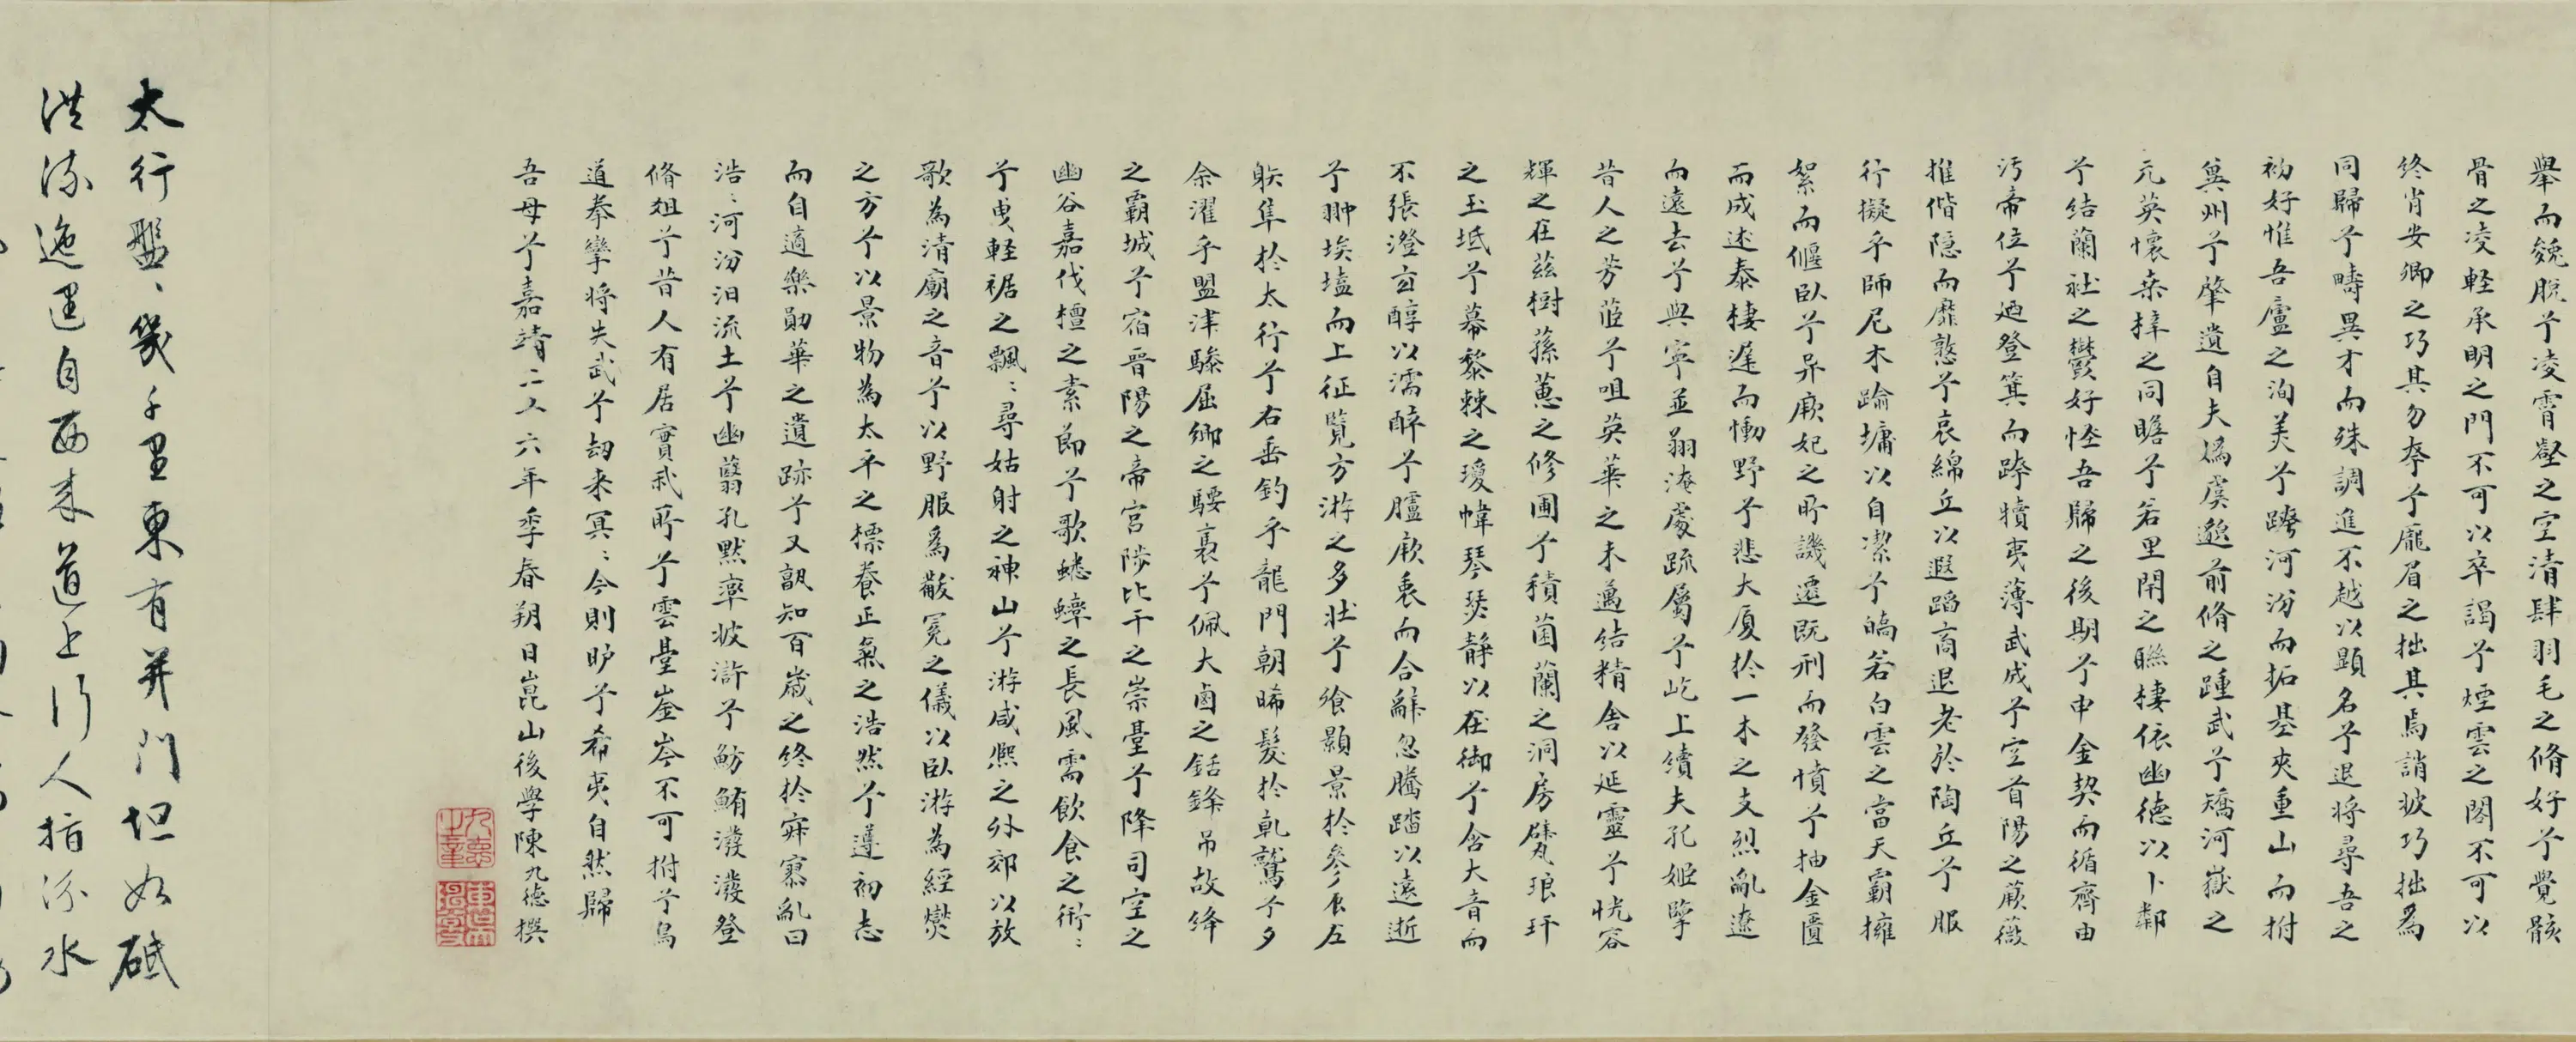 舉而巍脫兮凌霄壑之空清肆羽毛之脩好兮覺骸
骨之凌輕承明之門不可以卒謁兮煙雲之閣不可以
終肖安卿之巧其勿奉兮龐眉之拙其焉誚披巧拙為
同歸兮疇異才而殊調進不越以顯名兮退將尋吾之
初好惟吾廬之洵美兮跨河汾而拓基夾重山而拊
冀州兮肇遺自夫媯虞邈前脩之踵武兮矯河嶽之
元英懷桑梓之同瞻兮若里閈之聯棲依幽德以卜鄰
兮結蘭社之鬱好怪吾歸之後期兮申金契而循齊由
汚帝位兮廼登箕而踤犢夷薄武成兮空首陽之蕨薇
推偕隱而靡憝兮哀綿丘以遐蹈商退老於陶丘兮服
行擬乎師尼木踰墉以自潔兮皜若白雲之當天霸擁
絮而偃臥兮异厥妃之所譏遷既刑而發憤兮抽金匱
而成述泰棲遲而慟野兮悲大厦於一木之支烈亂遼
而遠去兮與寧並翔淹處疏屬兮屹上續夫孔姬擥
昔人之芳茝兮咀英華之未邁結精舍以延靈兮恍容
輝之在茲樹蓀蕙之修圃兮積菌蘭之洞房甓琅玕
之玉坻兮幕藜棘之瓊幃琴瑟静以在御兮含大音而
不張澄玄醇以濡醉兮臚厥衷而合辭忽騰踏以遠逝
兮翀埃壒而上征覽方游之多壯兮飨顥景於參辰左
躾隼於太行兮右垂釣乎龍門朝晞髮於軏鷲兮夕
余濯乎盟津驂屈鄉之騕褭兮佩大鹵之銛鋒吊故絳
之霸城兮宿晉陽之帝宫陟比干之崇臺兮降司空之
幽谷嘉伐檀之素節兮歌蟋蟀之長風需飲食之衎〻
兮曳軽裾之飄〻尋姑射之神山兮游咸熙之外郊以放
歌為清廟之音兮以野服為黻冕之儀以臥游為經爕
之方兮以景物為太平之標養正氣之浩然兮遵初志
而自適樂勛華之遺跡兮又詎知百歲之終於寂寞亂曰
浩〻河汾汨流土兮幽蘙孔黙率披滸兮魴鮪潑潑登
脩俎兮昔人有居實我所兮雲臺崟岑不可拊兮烏
道拳攣将失武兮刼来冥〻今則旷兮希夷自然歸
吾母兮嘉靖二十六年季春朔日崑山後學陳九德撰
九德之章
太行盤〻幾千里東有井門坦如砥
洪流迤邐自西来道上行人指汾水